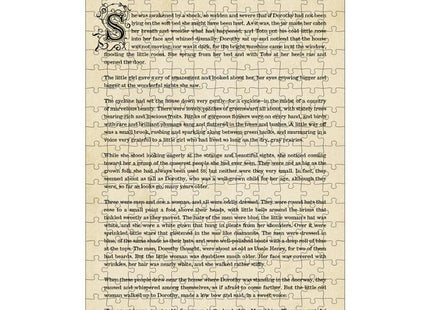 She was awakened by a shock, so sudden and severe that if Dorothy had not been
lying on the soft bed she might have been hurt. As it was, the jar made her catch
her breath and wonder what had happened; and Toto put his cold little nose
into her face and whined dismally. Dorothy sat up and noticed that the house
was not moving; nor was it dark, for the bright sunshine came in at the window,
flooding the little room. She sprang from her bed and with Toto at her heels ran and
opened the door.
The little girl gave a cry of amazement and looked about her, her eyes growing bigger and
bigger at the wonderful sights she saw.
The cyclone had set the house down very gently--for a cyclone--in the midst of a country
of marvelous beauty. There were lovely patches of greensward all about, with stately trees
bearing rich and luscious fruits. Banks of gorgeous flowers were on every hand, and birds
with rare and brilliant plumage sang and fluttered in the trees and bushes. A little way off
was a small brook, rushing and sparkling along between green banks, and murmuring in a
voice very grateful to a little girl who had lived so long on the dry, gray prairies.
While she stood looking eagerly at the strange and beautiful sights, she noticed coming
toward her a group of the queerest people she had ever seen. They were not as big as the
grown folk she had always been used to; but neither were they very small. In fact, they
seemed about as tall as Dorothy, who was a well-grown child for her age, although they
were, so far as looks go, many years older.
Three were men and one a woman, and all were oddly dressed. They wore round hats that
rose to a small point a foot above their heads, with little bells around the brims that
tinkled sweetly as they moved. The hats of the men were blue; the little woman's hat was
white, and she wore a white gown that hung in pleats from her shoulders. Over it were
sprinkled little stars that glistened in the sun like diamonds. The men were dressed in
blue, of the same shade as their hats, and wore well-polished boots with a deep roll of blue
at the tops. The men, Dorothy thought, were about as old as Uncle Henry, for two of them
had beards. But the little woman was doubtless much older. Her face was covered with
wrinkles, her hair was nearly white, and she walked rather stiffly.
When these people drew near the house where Dorothy was standing in the doorway, they
paused and whispered among themselves, as if afraid to come farther. But the little old
woman walked up to Dorothy, made a low bow and said, in a sweet voice: